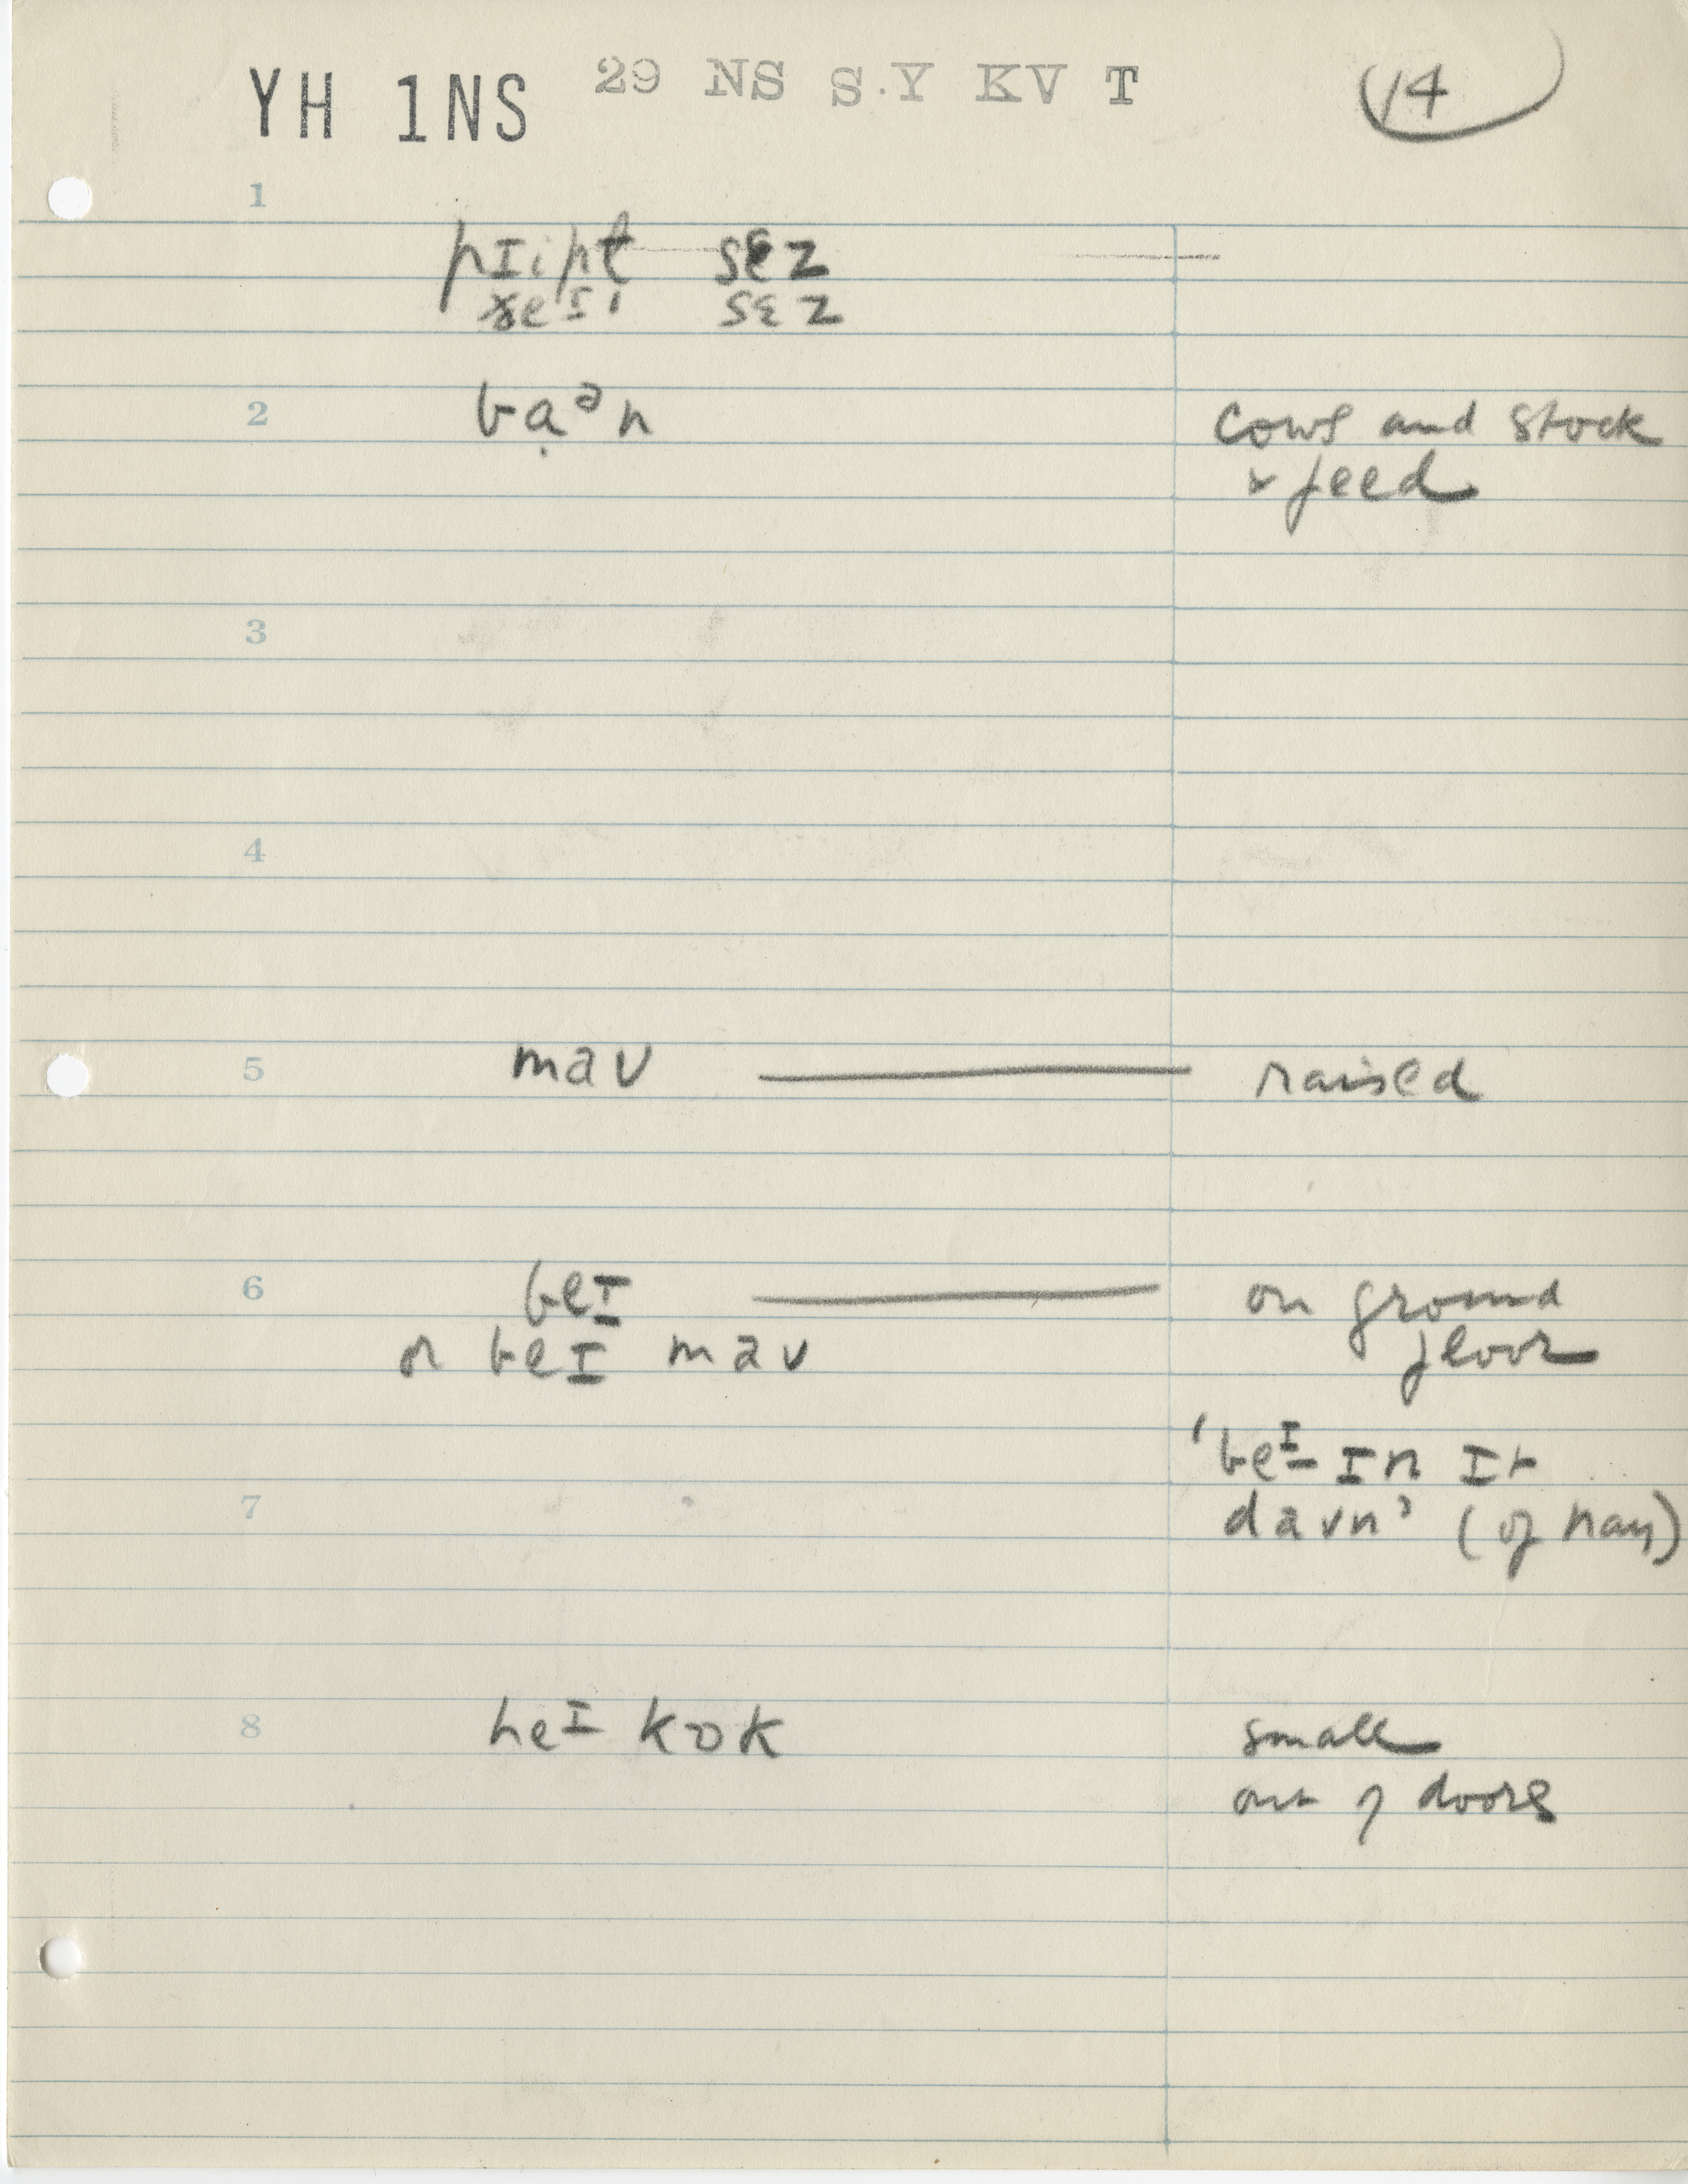 YH 1NS 29 NS S.Y KV T 14
1
pɪipt sɛz
sɛz
2 baᵊn cows and stock
& feed
3
4
5 maʊ raised
6 beɪ on ground
or beɪ maʊ floor
'beɪ ɪn ɪt
7 daʊn' (of hay)
8 heɪ kɒk small
out of doors